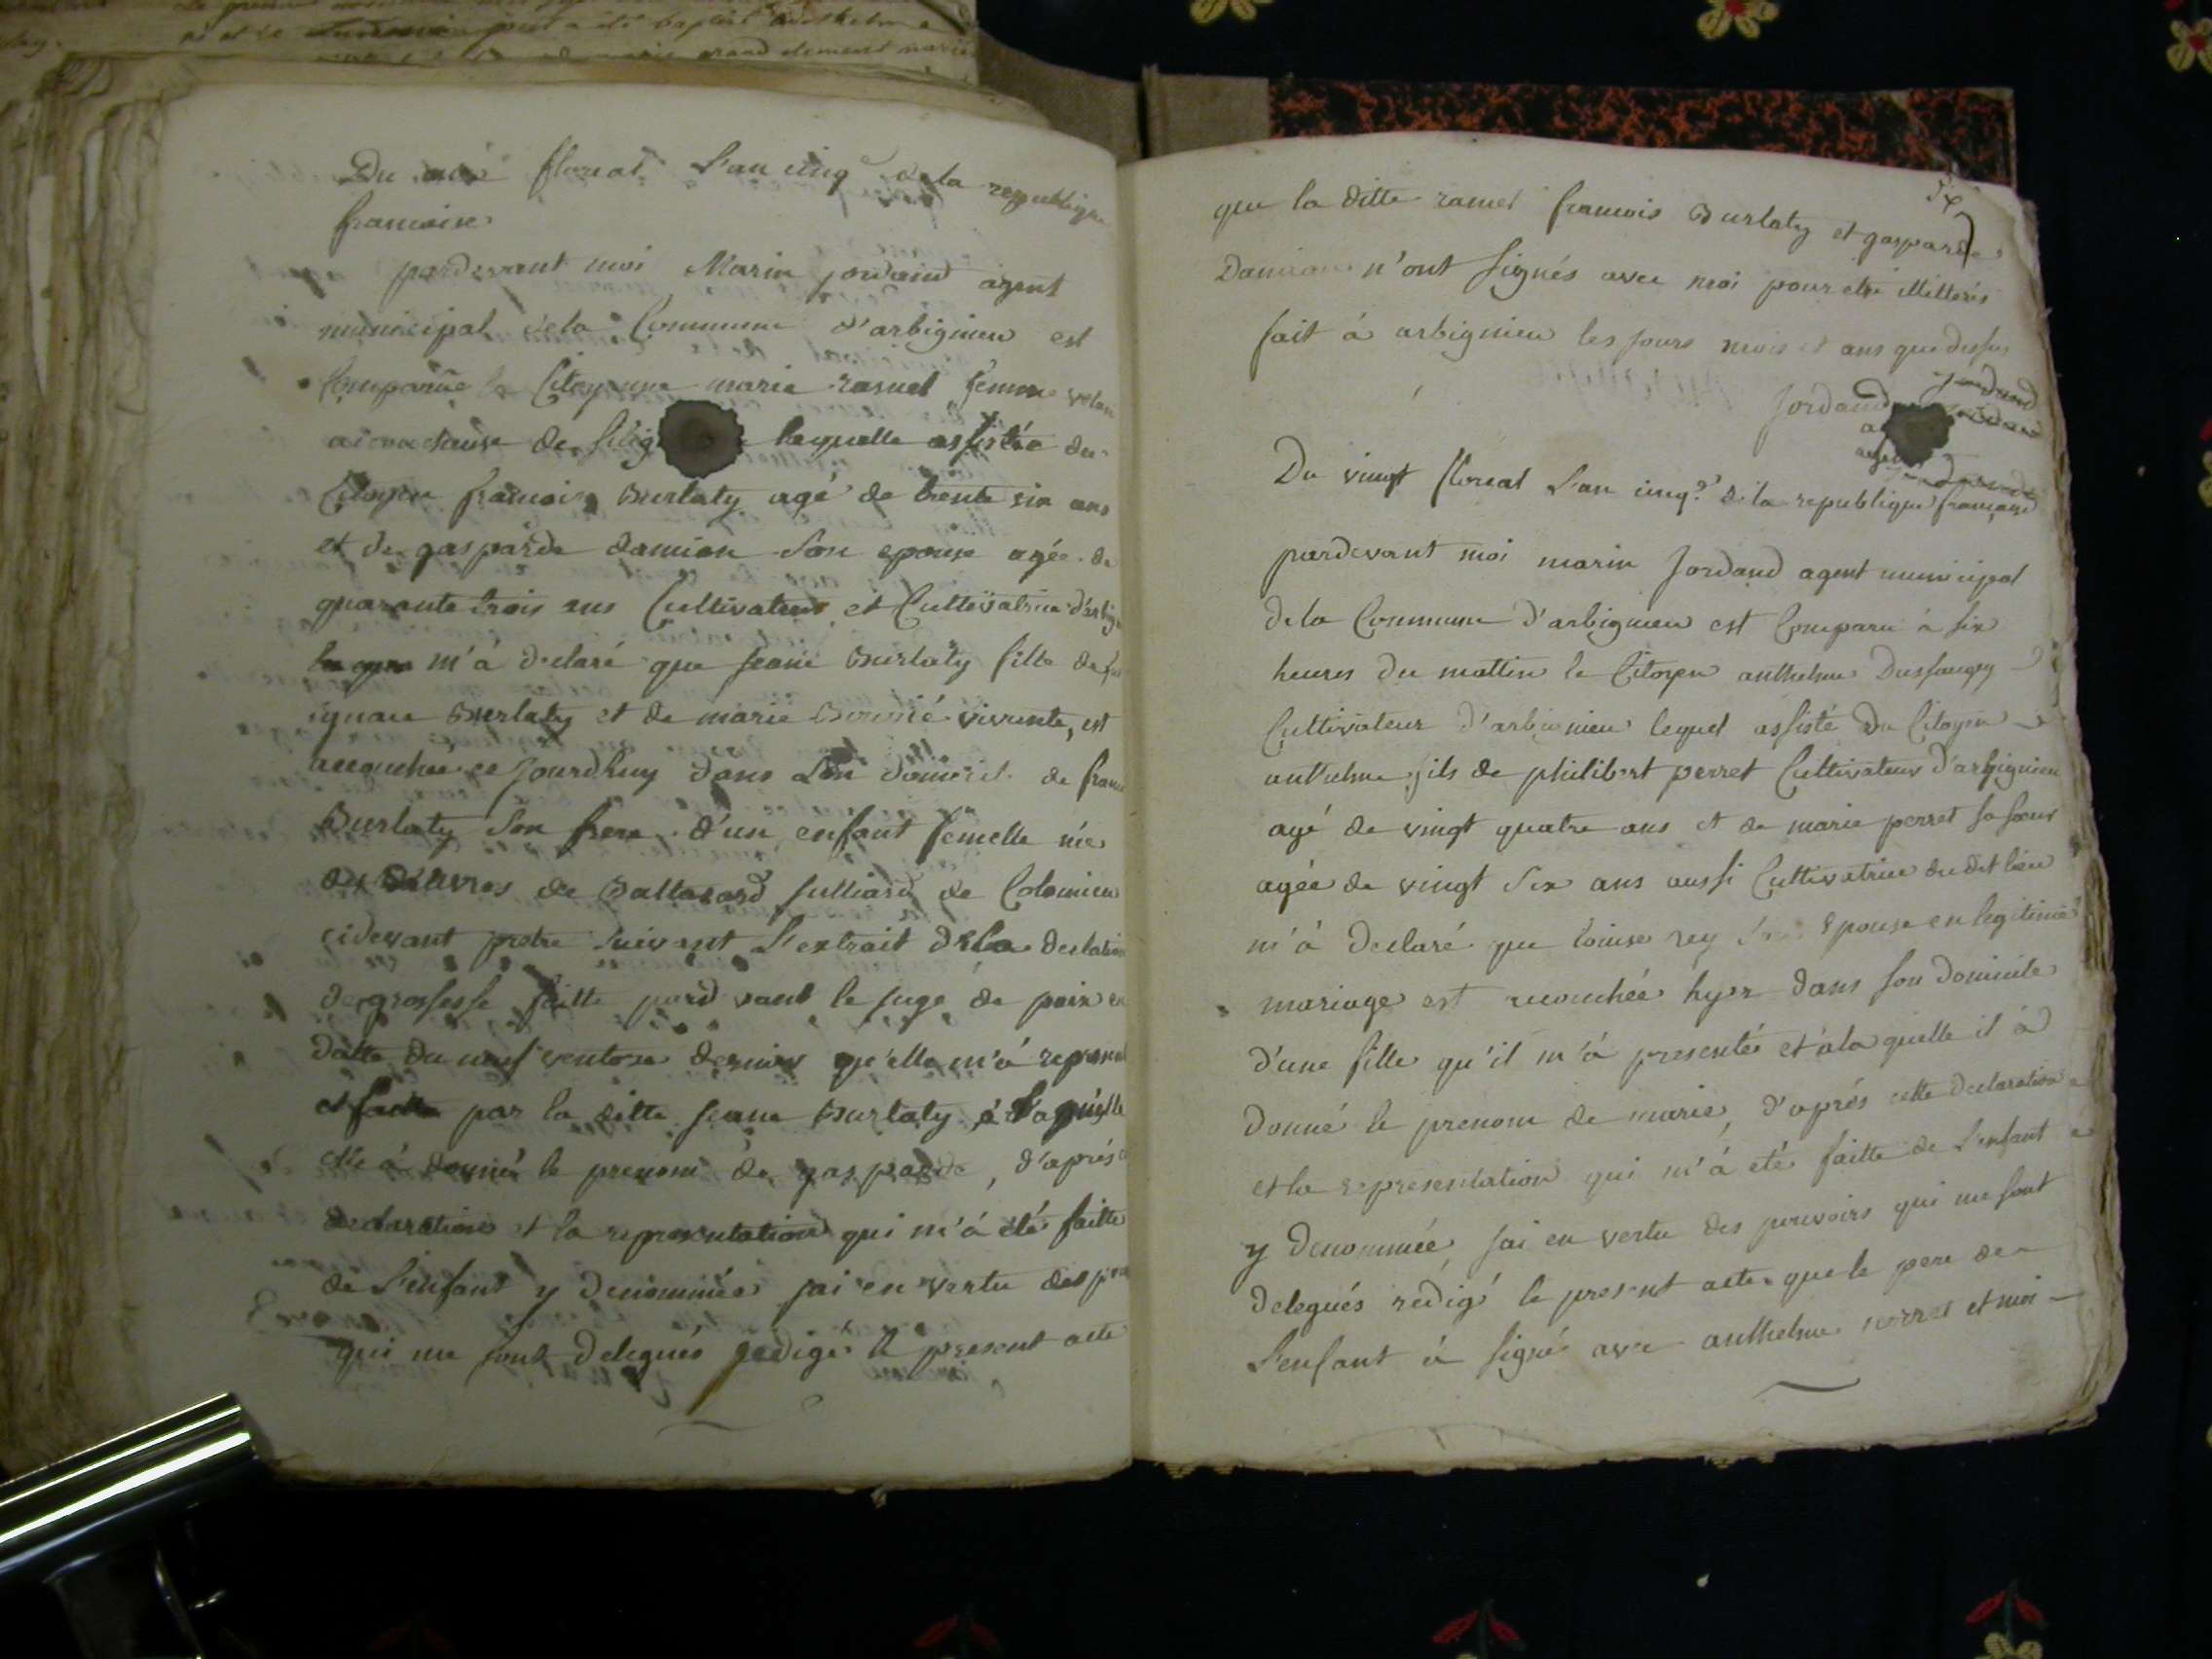 Du floreal L'an cinq de la republique
francoise
pardevant moi Marin jordand agent
municipal dela Commune d'arbignieu est
Comparüe la Citoyenne marie ramel femme
de laquelle assistée du
Citoyen francois Burlaty agé de trente six ans
et de gasparde damian son epouse agée de
quarante trois ans Cultivateur et Cultivatrice
m'à declaré que jeane Burlaty fille de
ignace Burlaty et de marie vivente, est
accouchée ce jourdhuy dans Son domicil de
Burlaty son frere d'un enfant femelle née
des œuvres de Baltazard julliard de Colomieu
cidevant pretre suivent L'extrait dela
de grossesse faitte pard vant le juge de paix en
datte du neuf ventose dernier qu'elle m'à
et par la ditte jeane Burlaty à Laquelle
elle à donné le prenom de gasparde, d'aprés
declaration et la representation qui m'à été faitte
de L'enfant y denommée jai en vertu des
qui me sont delegués redigé le present acte
que la ditte ramel francois Burlaty et gasparde
Damian n'ont signés avec moi pour etre illitterés
fait à arbignieu les jours mois et ans que dessus
Jordand
Du vingt floreal L'an cinq.e dela republique francaise
pardevant moi marin Jordand agent municipal
dela Commune d'arbignieu est Comparu à six
heures du mattin le Citoyen anthelme
Cultivateur d'arbignieu lequel assisté du Citoyen
anthelme fils de philibert perret Cultivateur d'arbignieu
agé de vingt quatre ans et de marie perret sa sœur
agée de vingt six ans aussi Cultivatrice du dit lieu
m'à declaré que louise rey Son Epouse en legitime
mariage est accouchée hyer dans son domicile
d'une fille qu'il m'à presentée et àla quelle il à
donné le prenom de marie, d'aprés cette declaration
et la representation qui m'à eté faitte de L'enfant
y denommée jai en vertu des pouvoirs qui me sont
delegués redigé le present acte que le pere de
L'enfant à signé avec anthelme perret et moi